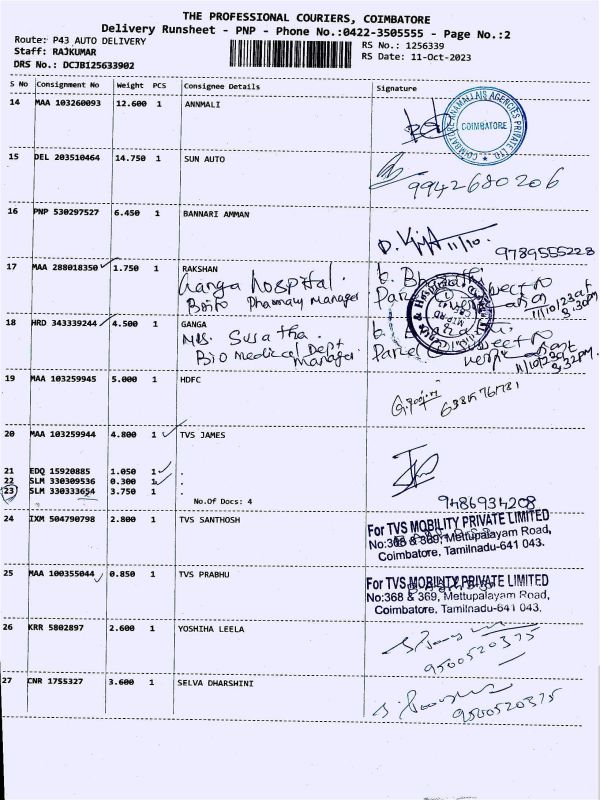 THE PROFESSIONAL COURIERS, COIMBATORE
Delivery Runsheet - PNP - Phone No.:0422-3505555 - Page No.:2
Route: P43 AUTO DELIVERY
RS No.: 1256339
Staff: RAJKUMAR
RS Date: 11-Oct-2023
DRS No.: DCJB125633902
S No Consignment No Weight PCS Consignee Details Signature
14 MAA 103260093 12.600 1 ANNMALI
COIMBATORE ANAMALLAIS AGENCIES PRIVATE LTD.
COIMBATORE
15 DEL 203510464 14.750 1 SUN AUTO
9942680206
16 PNP 530297527 6.450 1 BANNARI AMMAN
D. 11/10.
9789555228
17 MAA 288018350 1.750 1 RAKSHAN
Ganga hospital.
Pharmacy Manager
18 HRD 343339244 4.500 1 GANGA
Mrs. Susatha.
Bio medical Dept
Manager
19 MAA 103259945 5.000 1 HDFC
20 MAA 103259944 4.800 1 TVS JAMES
21 EDQ 15920885 1.050 1 .
22 SLM 330309536 0.300 1 .
23 SLM 330333654 3.750 1 .
No.Of Docs: 4
9486934208
24 IXM 504790798 2.800 1 TVS SANTHOSH
For TVS MOBILITY PRIVATE LIMITED
No:368 & 369, Mettupalayam Road,
Coimbatore, Tamilnadu-641 043.
25 MAA 100355044 0.850 1 TVS PRABHU
For TVS MOBILITY PRIVATE LIMITED
No:368 & 369, Mettupalayam Road,
Coimbatore, Tamilnadu-641 043.
26 KRR 5802897 2.600 1 YOSHIHA LEELA
9500520375
27 CNR 1755327 3.600 1 SELVA DHARSHINI
9500520375